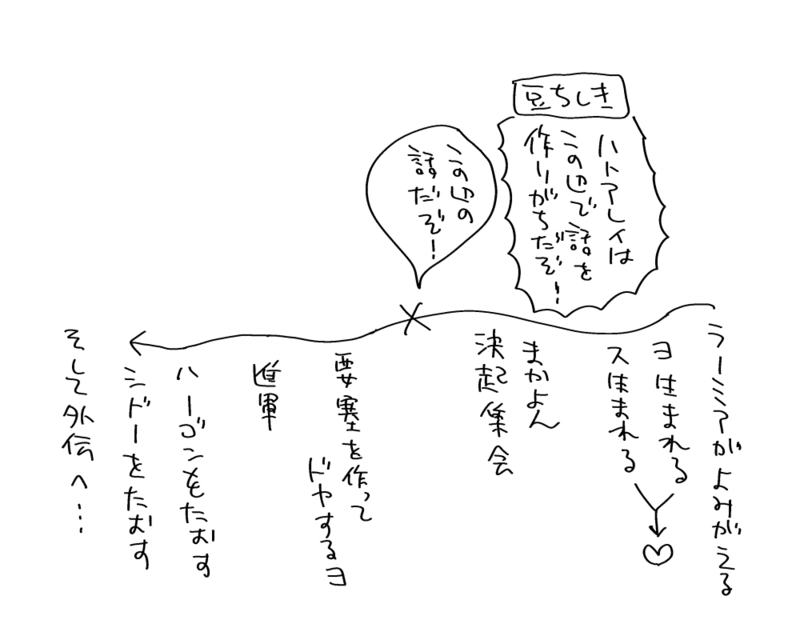 豆ちしき
ハトアレイは
この辺で話を
作りがちだぞ!
この辺の
話だぞ!
ラーミアがよみがえる
ヨ生まれる
ス生まれる
まかよん
決起集会
要塞を作って
ドヤするヨ
進軍
ハーゴンをたおす
シドーをたおす
そして外伝へ…